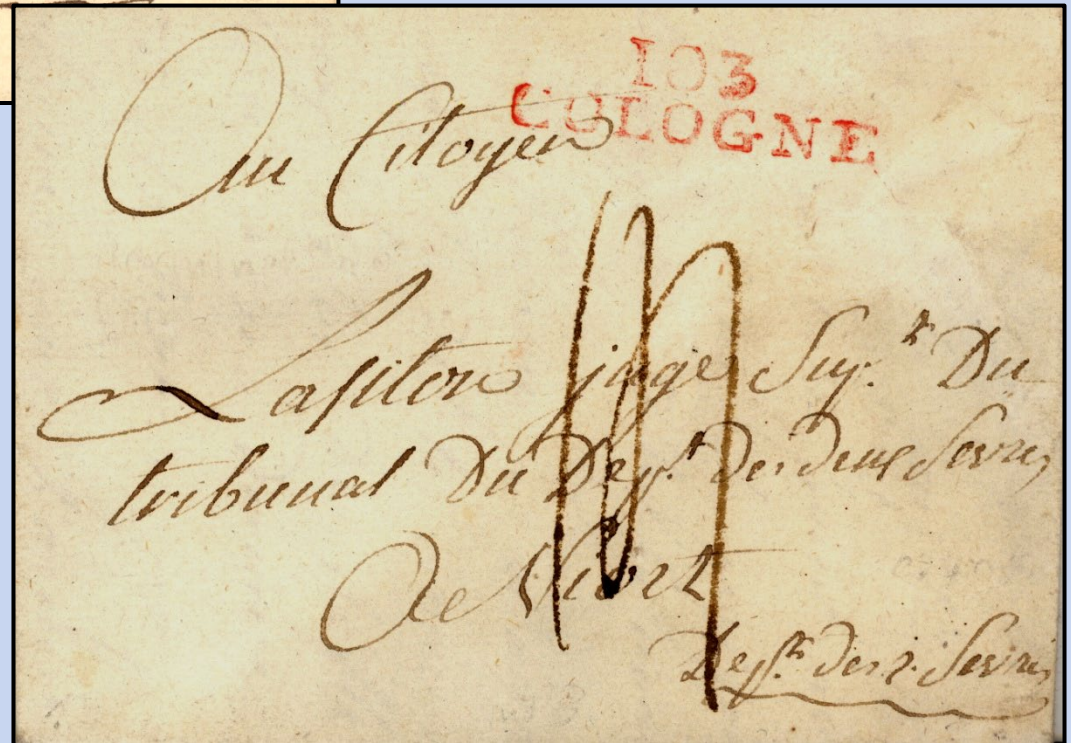 103
COLOGNE
Au Citoyen
juge Sup.t Du
tribunal Du Dep.t Des deux Sevres
A Niort
Dep.t des 2. Sevres